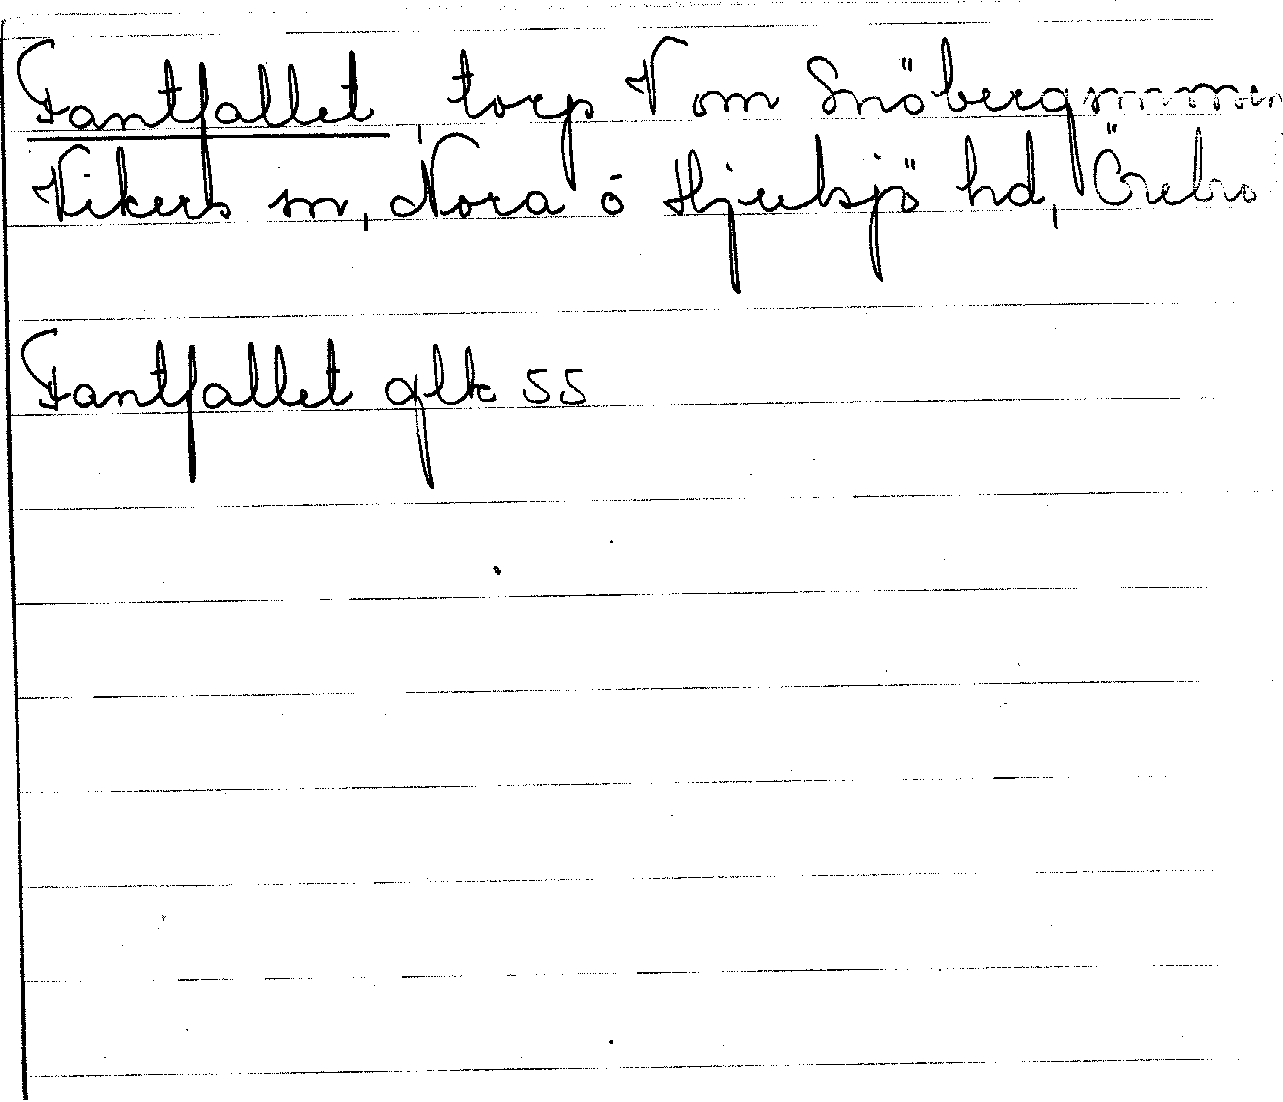 Fantfallet, torp V om Snöbergs
Vikers sn, Nora o Hjulsjö hd, Örebro
Fantfallet glk 55